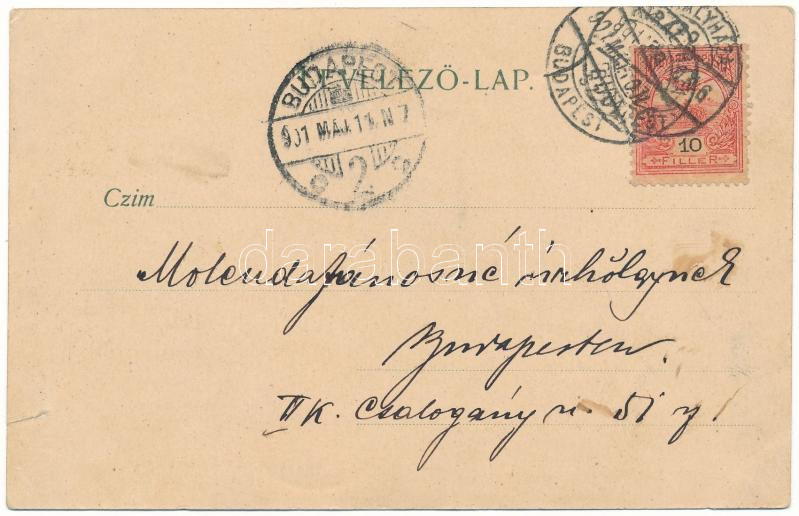 LEVELEZŐ-LAP.
BUDAPEST
901 MÁJ. 11. N 7
2
BUDAPEST
10
FILLER
Czim
darabanth
Molenda Jánosné úrhölgynek
Budapesten.
II K. Csalogány u. 51